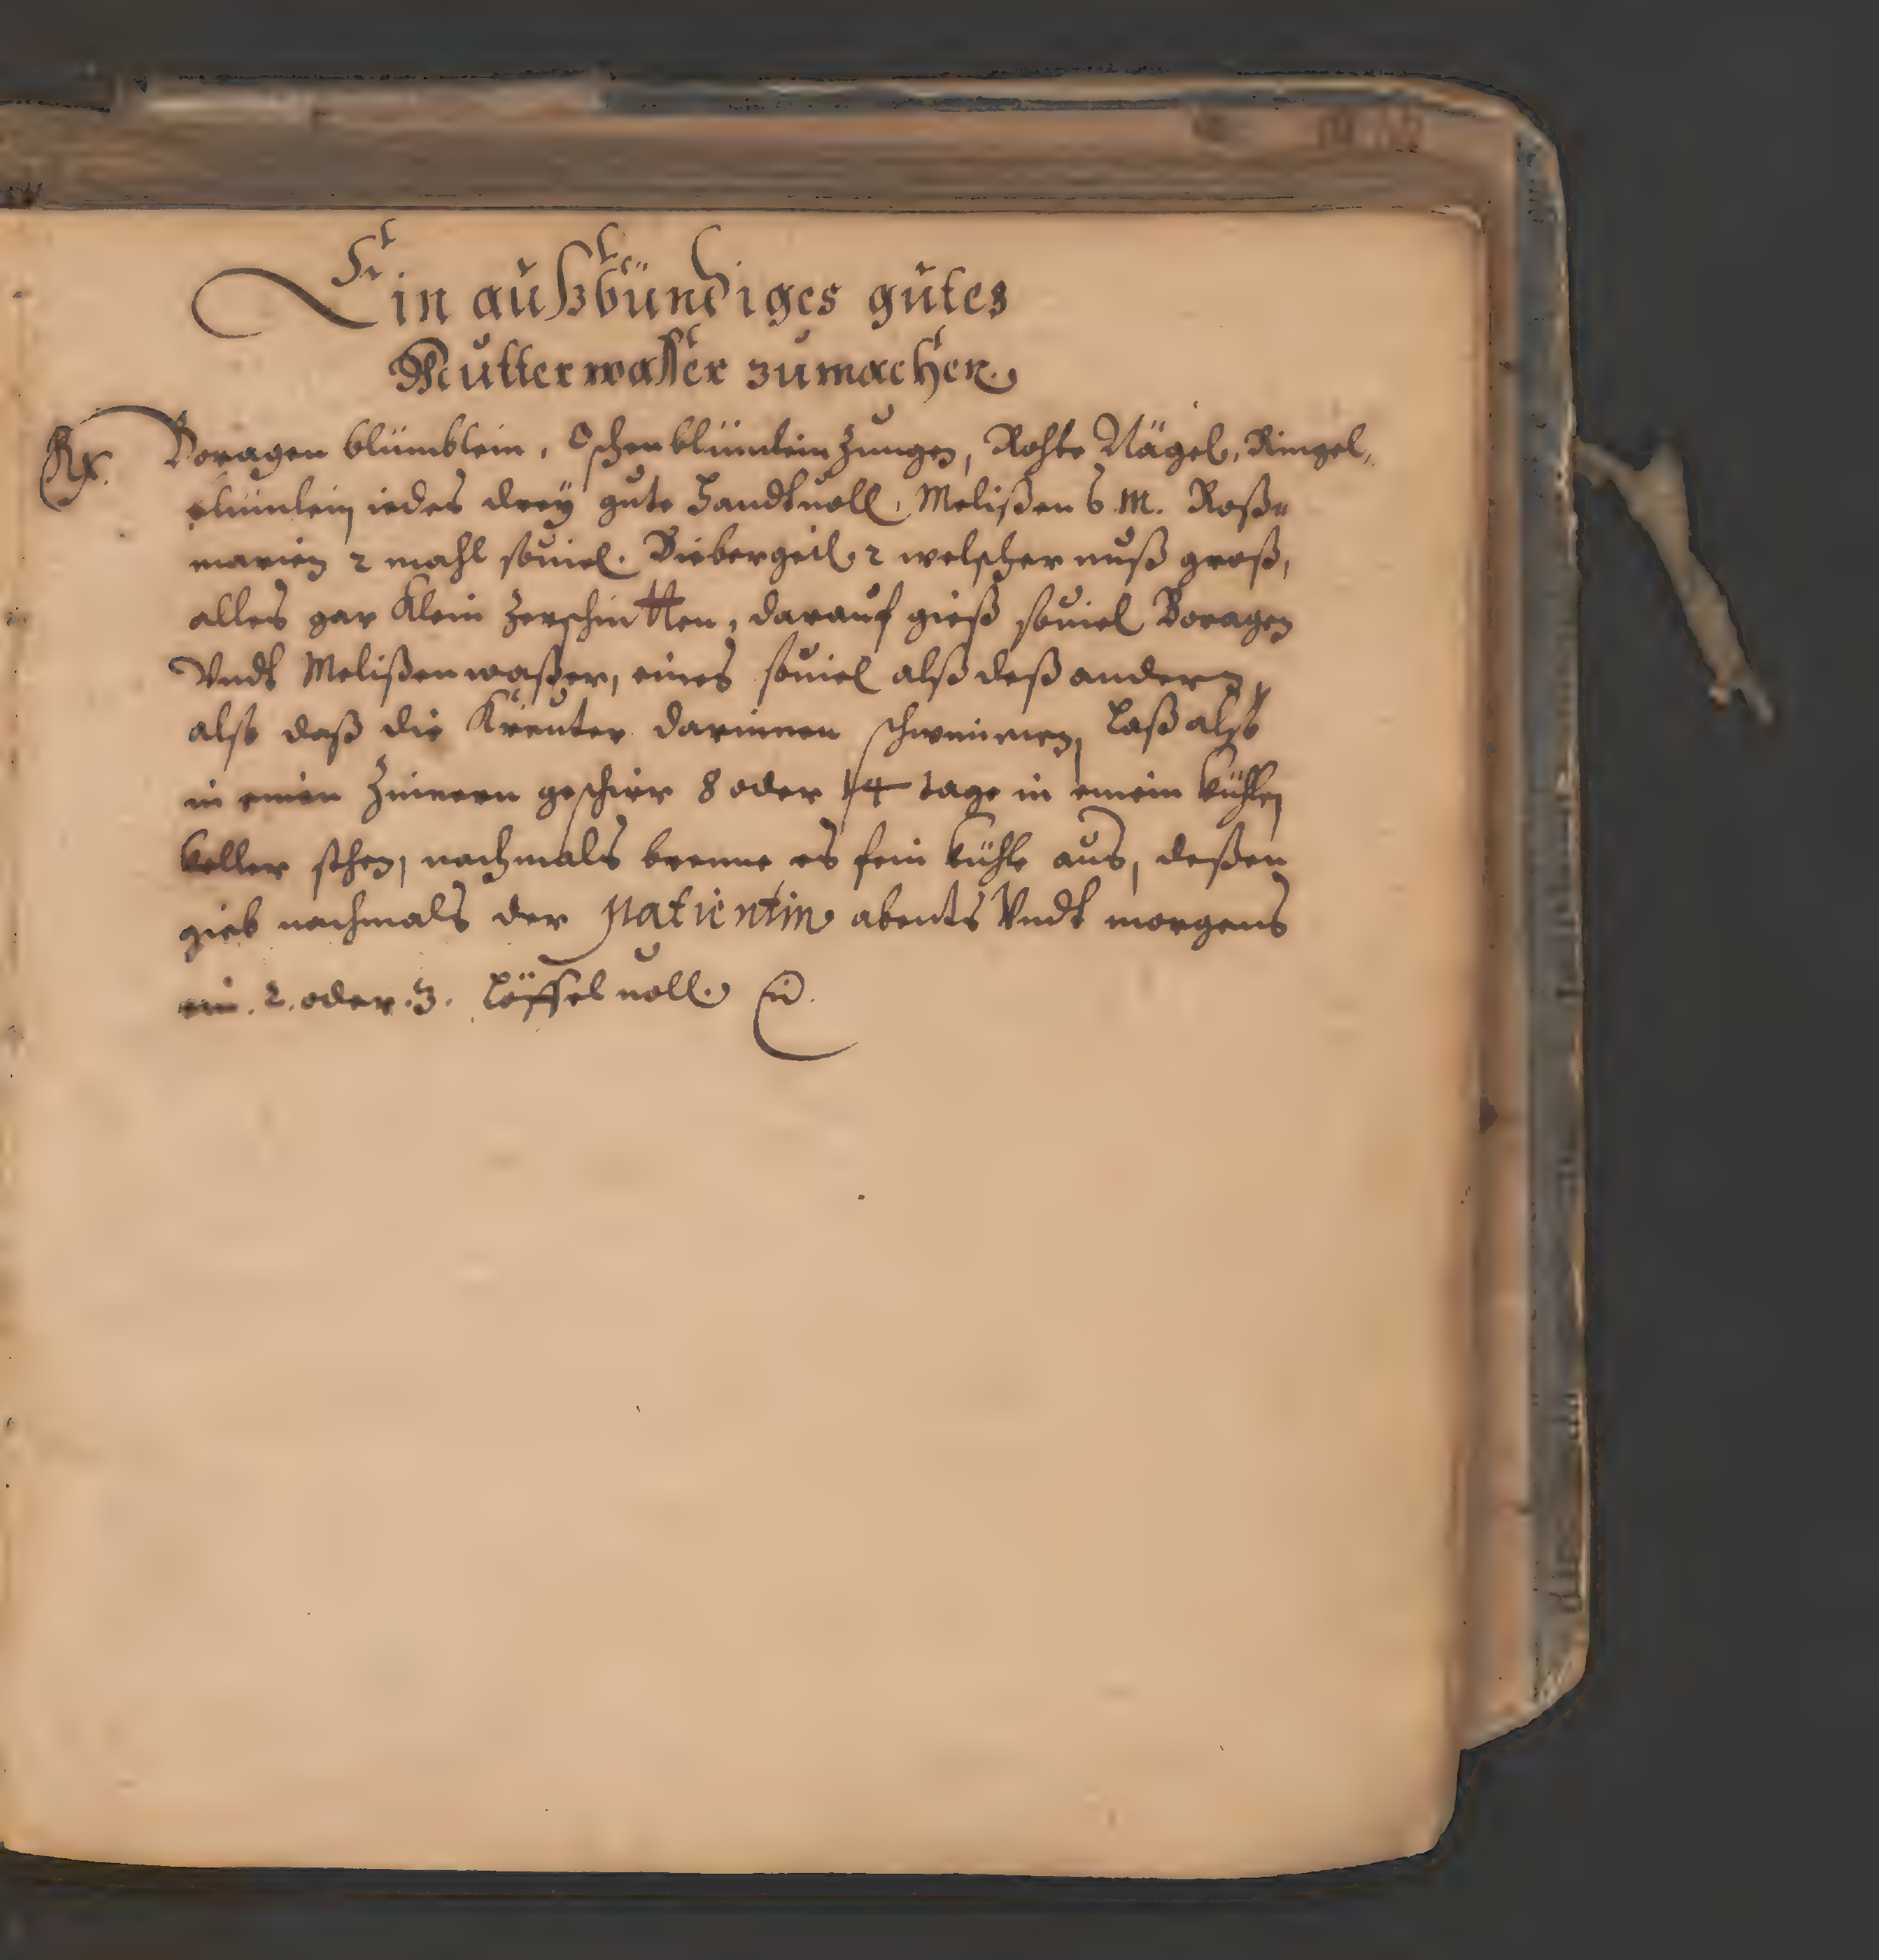 Ein außbündiges gutes
Mutterwasser zumachen.
Rx. Boragen blümblein, Ochsenblümleinzungen, Rohte Nägel, Ringel„
blümlein iedes drey gute Handtuoll, Melißen 6 M. Roß„
marien 2 mahl souiel. Biebergeil 2 welscher nuß groß,
alles gar Klein zerschnitten, darauf gieß souiel Boragen
Vndt Melißenwaßer, eines souiel alß deß andern,
alß daß die Kreuter darinnen schwimmen, Laß alß
in einen Zinnern geschirr 8 oder 14 tage in einem kühlen
keller stehen, nachmals brenne es fein kühle aus, deßen
gieb nachmals der patientin abents Vndt morgens
ein. 2. oder. 3. Löffel uoll.